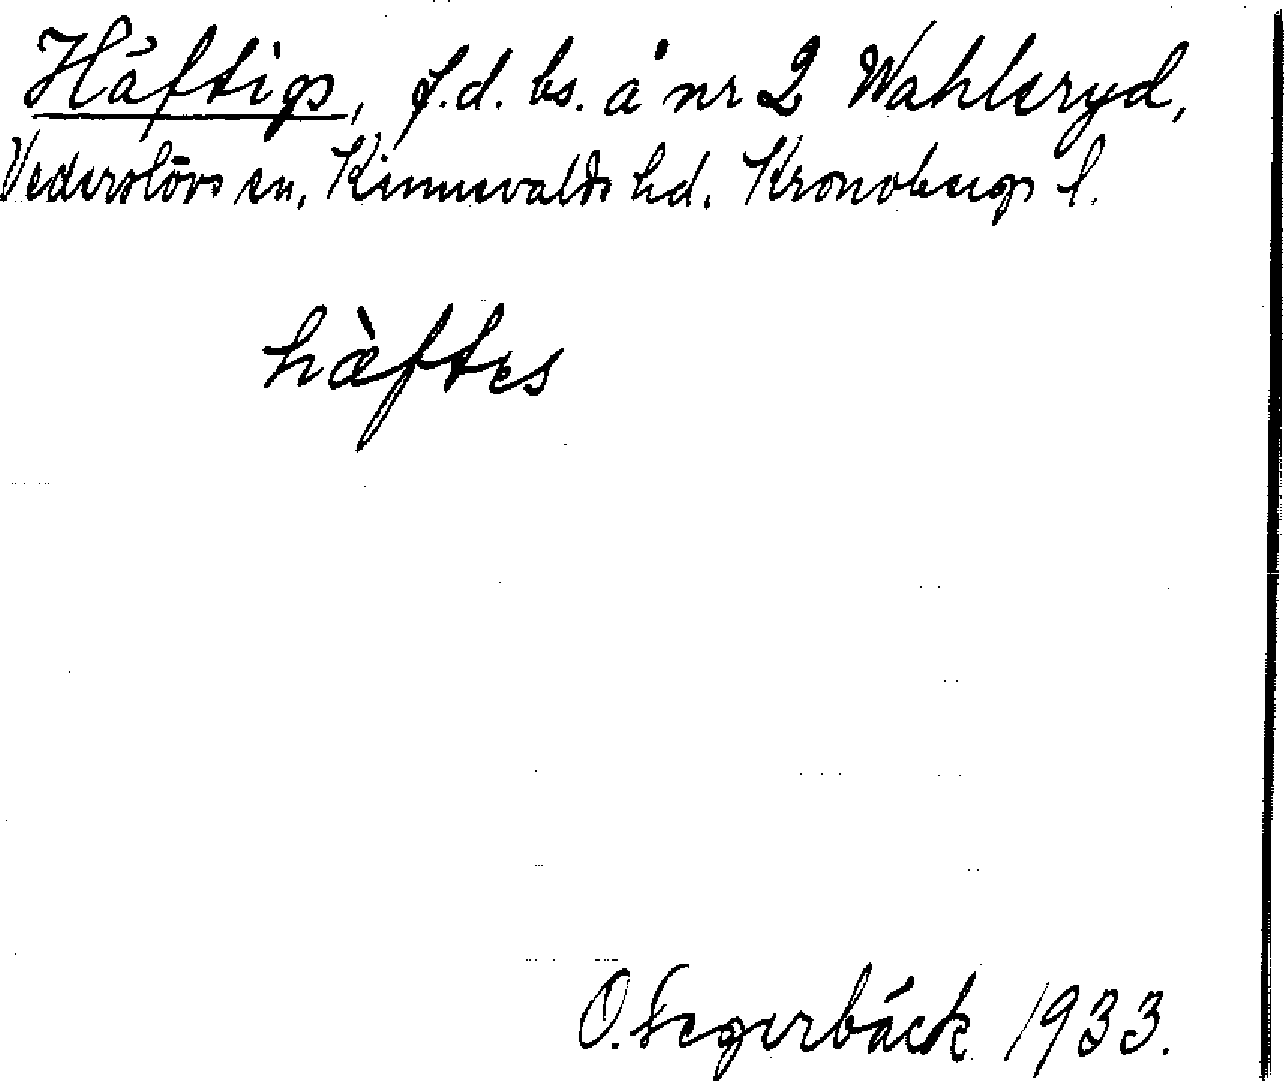 Häftigs, f.d. bs. å nr 2 Wahlsryd,
Vederslövs sn, Kinnevalds hd. Kronobergs l.
hæ̀ftes
O. Fegerbäck 1933.